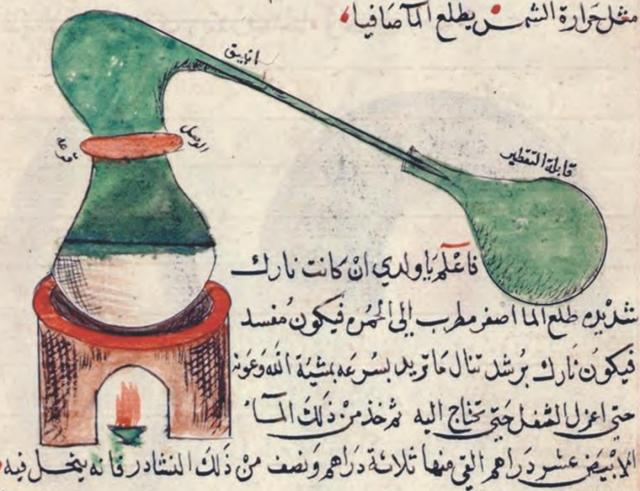 مثل حرارة الشمس يطلع المآ صافيا
انبيق
الوصل
قرعه
قابلة التقطير
فاعلم يا ولدي ان كانت نارك
شديده طلع الما اصفر مطرب إلى الحمره فيكون مفسد
فيكون نارك برشد تنال ما تريد بسرعه بمشيئة الله وعونه
حتى اعزل الثفل حتى تحتاج اليه ثم خذ من ذلك المآء
الابيض عشر دراهم القي منها ثلاثة دراهم ونصف من ذلك النشادر فانه ينحل فيه